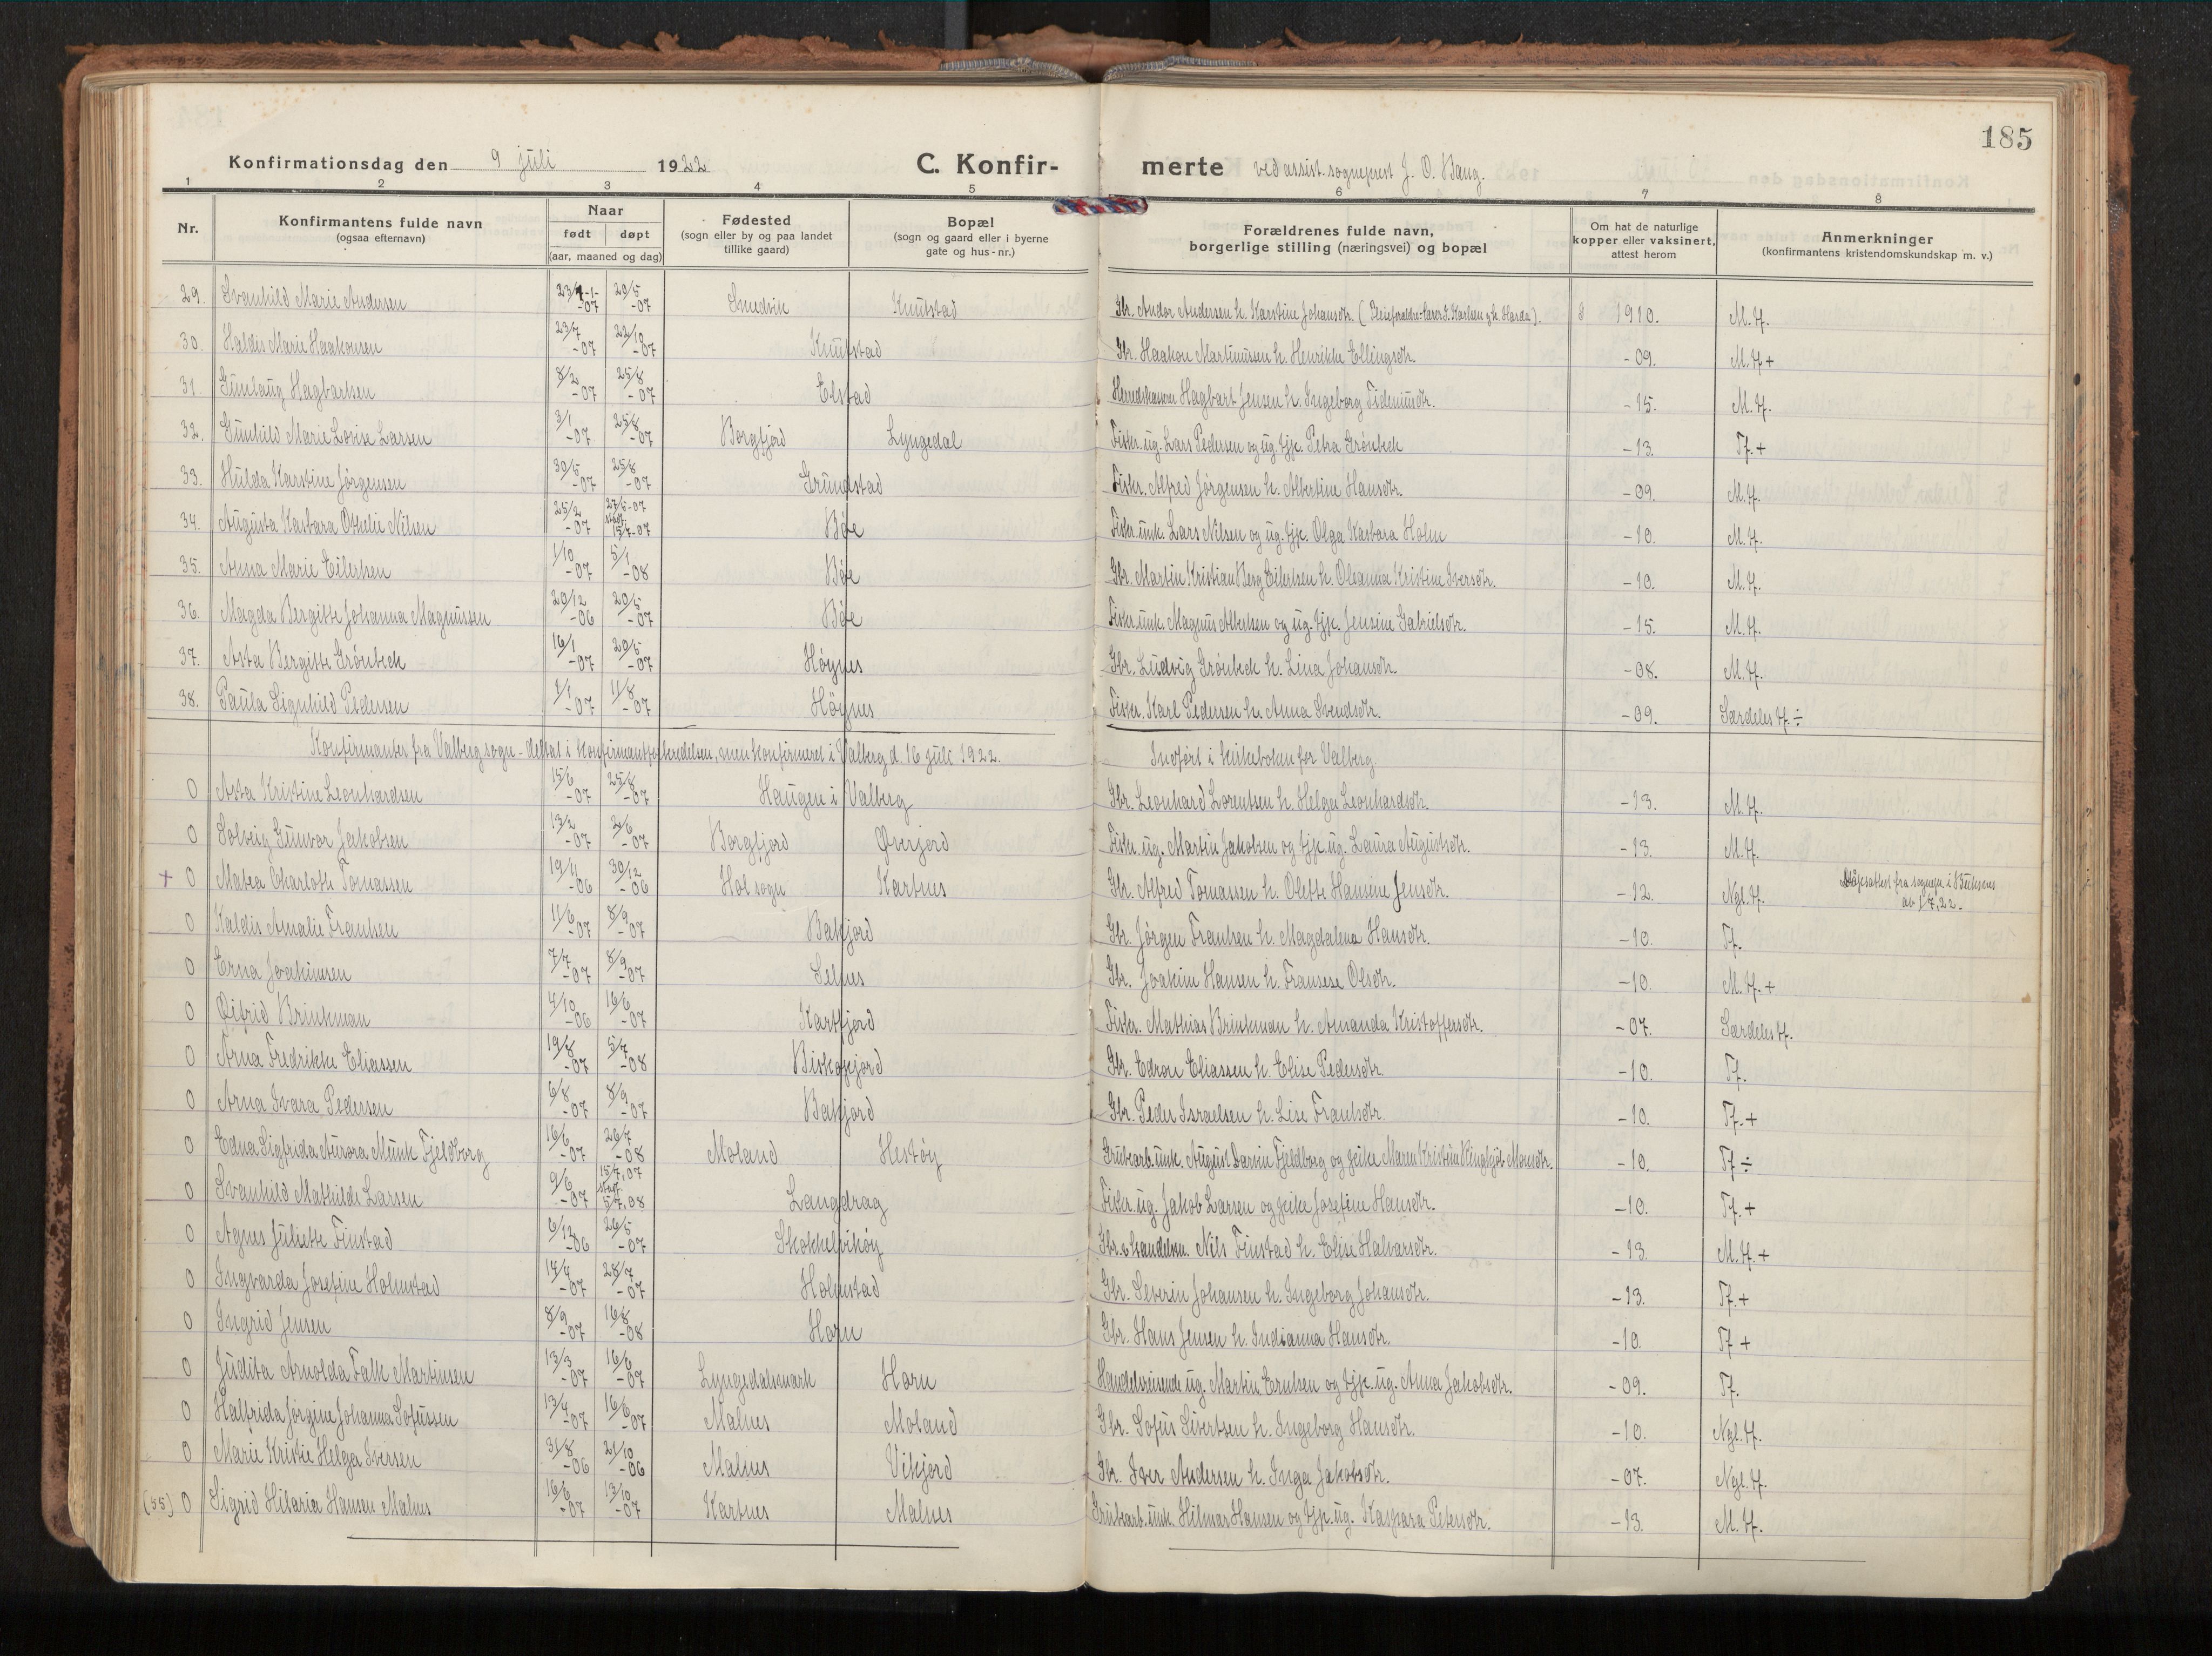 185
Konfirmationsdag den 9 juli 1922 C. Konfir- merte ved assist. sogneprest J. O. Bang.
1 2 3 4 5 6 7 8
Nr. Konfirmantens fulde navn (ogsaa efternavn) Naar født døpt (aar, maaned og dag) Fødested (sogn eller by og paa landet tillike gaard) Bopæl (sogn og gaard eller i byerne gate og hus-nr.) Forældrenes fulde navn, borgerlige stilling (næringsvei) og bopæl Om hat de naturlige kopper eller vaksinert, attest herom Anmerkninger (konfirmantens kristendomskundskap m. v.)
29. Svanhild Marie Andersen 23/1 -07 20/5 -07 Smedvik Knutstad Gbr. Andor Andersen h. Karstine Johansdtr. 1910. M.H.
30. Haldis Marie Haakonsen 23/7 -07 22/10 -07 Knutstad Gbr. Haakon Martinussen h. Henrikke Ellingsdtr. -09. M.H+
31. Gunlaug Hagbartsen 8/2 -07 25/8 -07 Elstad Hagbart Jensen h. Ingeborg -15. M.H.
32. Gunhild Marie Lovise Larsen 3/1 -07 25/8 -07 Borgfjord Lyngedal Fisker. ug. Lars Pedersen og ug. tjp. Petra Grönbeck -13. Tf.+
33. Hulda Karstine Jörgensen 30/5 -07 25/8 -07 Grundstad Fisker. Alfred Jörgensen h. Albertine Hansdtr. -09. M.H.
34. Augusta Kasbara Othelie Nilsen 25/2 -07 27/5-07 stadf. 15/7-07 Böe Fisker. unk. Lars Nilsen og ug. tjp. Olga Kasbara Holm -10. M.H.
35. Anna Marie Eilertsen 1/10 -07 5/1 -08 Böe Gbr. Martin Kristian Berg Eilertsen h. Oleanna Kristine Iversdtr. -10. M.H.
36. Magda Bergitte Johanna Magnussen 20/12 -06 20/5 -07 Böe Fisker. unk. Magnus Albertsen og ug. tjp. Jensine Gabrielsdtr. -15. M.H.
37. Asta Bergitte Grönbeck 16/1 -07 20/5 -07 Höynes Gbr. Ludvig Grönbeck h. Lina Johansdtr. -08. M.H.
38. Paula Signhild Pedersen 1/1 -07 11/8 -07 Höynes Fisker. Karl Pedersen h. Anna Svendsdtr. -09. Særdeles H.÷
Konfirmanter fra Valberg sogn - deltat i konfirmantforberedelsen, men konfirmeret i Valberg d. 16 juli 1922. Indført i kirkeboken for Valberg.
0 Asta Kristine Leonhardsen 15/6 -07 25/8 -07 Haugen i Valberg Gbr. Leonhard Lorentsen h. Helga Leonhardsdtr. -13. M.H.
0 Solveig Gunvor Jakobsen 13/2 -07 2/6 -07 Borgfjord Øverjord Fisker. ug. Martin Jakobsen og tjp. ug. Laura Augustsdtr. -13. M.H.
+ 0 Matea Charloth Tomassen 19/11 -06 30/12 -06 Hol sogn Kartnes Gbr. Alfred Tomassen h. Olette Hansine Jensdtr. -12. Ngl.H. fra sognepr. i Buksnes av 1/7,22.
0 Haldis Amalie Frantsen 11/6 -07 8/9 -07 Bakjord Gbr. Jörgen Frantsen h. Magdalena Hansdtr. -10. Tf.
0 Erna Joakimsen 7/7 -07 8/9 -07 Selnes Gbr. Joakim Hansen h. Fransese Olsdtr. -10. M.H.+
0 Brinkman 4/10 -06 16/6 -07 Kartfjord Fisker. Mathias Brinkman h. Amanda Kristoffersdtr. -07. Særdeles H.
0 Arna Fredrikke Eliassen 19/8 -07 5/7 -08 Biskopjord Gbr. Edron Eliassen h. Elise Pedersdtr. -10. Tf.
0 Arna Ivara Pedersen 6/8 -07 8/9 -07 Bakjord Gbr. Peder Israelsen h. Lise Frantsdtr. -10. Tf.+
0 Edna Sigfrida Aurora Munk Fjeldborg 16/6 -07 26/7 -08 Moland Hestöy Grubearb. unk. August Darvin Fjeldborg og pike Maren Kristine Monsdtr. -10. Tf÷
0 Svanhild Mathilde Larsen 9/6 -07 15/7,07 stadf. 5/7,08 Langdrag Fisker. ug. Jakob Larsen og pike Josefine Hansdtr. -10. Tf.+
0 Agnes Juliette Finstad 6/12 -06 26/5 -07 Skokkelvikøy Gbr. & handelsm. Nils Finstad h. Elise Halvarsdtr. -13. M.H.+
0 Ingvarda Josefine Holmstad 14/4 -07 28/7 -07 Holmstad Gbr. Severin Johansen h. Ingeborg Johansdtr. -13. Tf.+
0 Ingrid Jensen 8/9 -07 16/8 -08 Horn Gbr. Hans Jensen h. Indianna Hansdtr. -10. Tf+
0 Judita Arnolda Falk Martinsen 13/3 -07 16/6 -07 Lyngedalsmark Horn Handelsreisende ug. Martin Erntsen og tjp. ug. Anna Jakobsdtr. -09. Tf.
0 Halfrida Jörgine Johanna Sofussen 13/4 -07 16/6 -07 Malnes Moland Gbr. Sofus Sivertsen h. Ingeborg Hansdtr. -10. Ngl.H.
0 Marie Kristie Helga Iversen 31/8 -06 21/10 -06 Malnes Vikjord Gbr. Iver Andersen h. Inga Jakobsdtr. -07. Ngl.H.
(55) 0 Sigrid Hilaria Hansen Malnes 16/6 -07 13/10 -07 Kartnes Malnes Grubearb. unk. Hilmar Hansen og tjp. ug. Kaspara Petersdtr. -13. M.H.